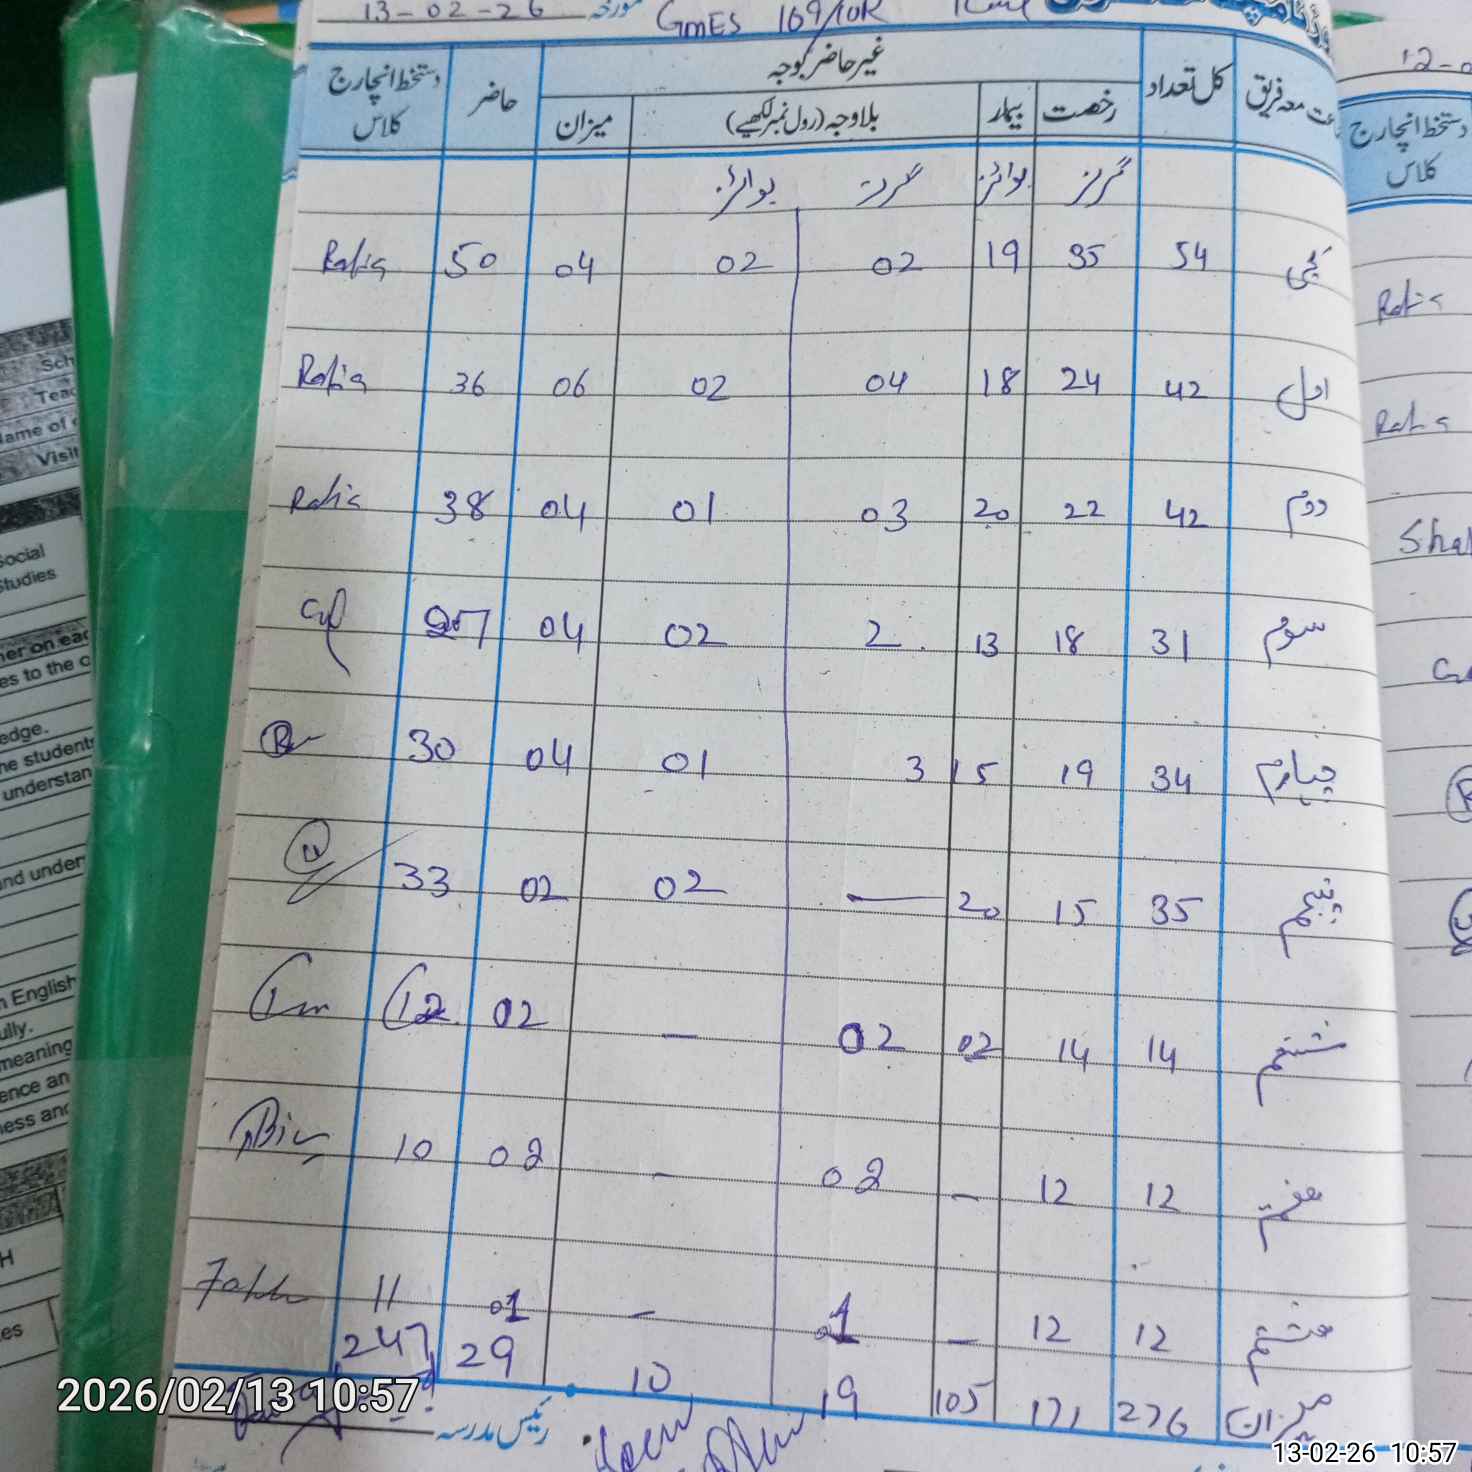 13-02-26 مورخہ GMES 109/10R
جماعت معہ فریق کل تعداد غیر حاضر بوجہ حاضر دستخط انچارج کلاس
رخصت بیمار بلا وجہ (رول نمبر لکھیے) میزان
گرلز بوائز گرلز بوائز
کچی 54 35 19 02 02 04 50 Rafia
اول 42 24 18 04 02 06 36 Rafia
دوم 42 22 20 03 01 04 38 Rafia
سوم 31 18 13 2 02 04 27
چہارم 34 19 15 3 01 04 30
پنجم 35 15 20 — 02 02 33
ششم 14 14 02 02 - 02 12
ہفتم 12 12 - 02 - 02 10
ہشتم 12 12 - 01 - 01 11
میزان 276 171 105 19 10 29 247
رئیس مدرسہ
2026/02/13 10:57
13-02-26 10:57
12-0
دستخط انچارج
کلاس
Rafia
Rafia
Sha
Sch
Teac
Name of
Visit
Social
Studies
her on eac
es to the c
edge.
he students
understan
and under
n English
ully.
meaning
ence an
ness and
H
es